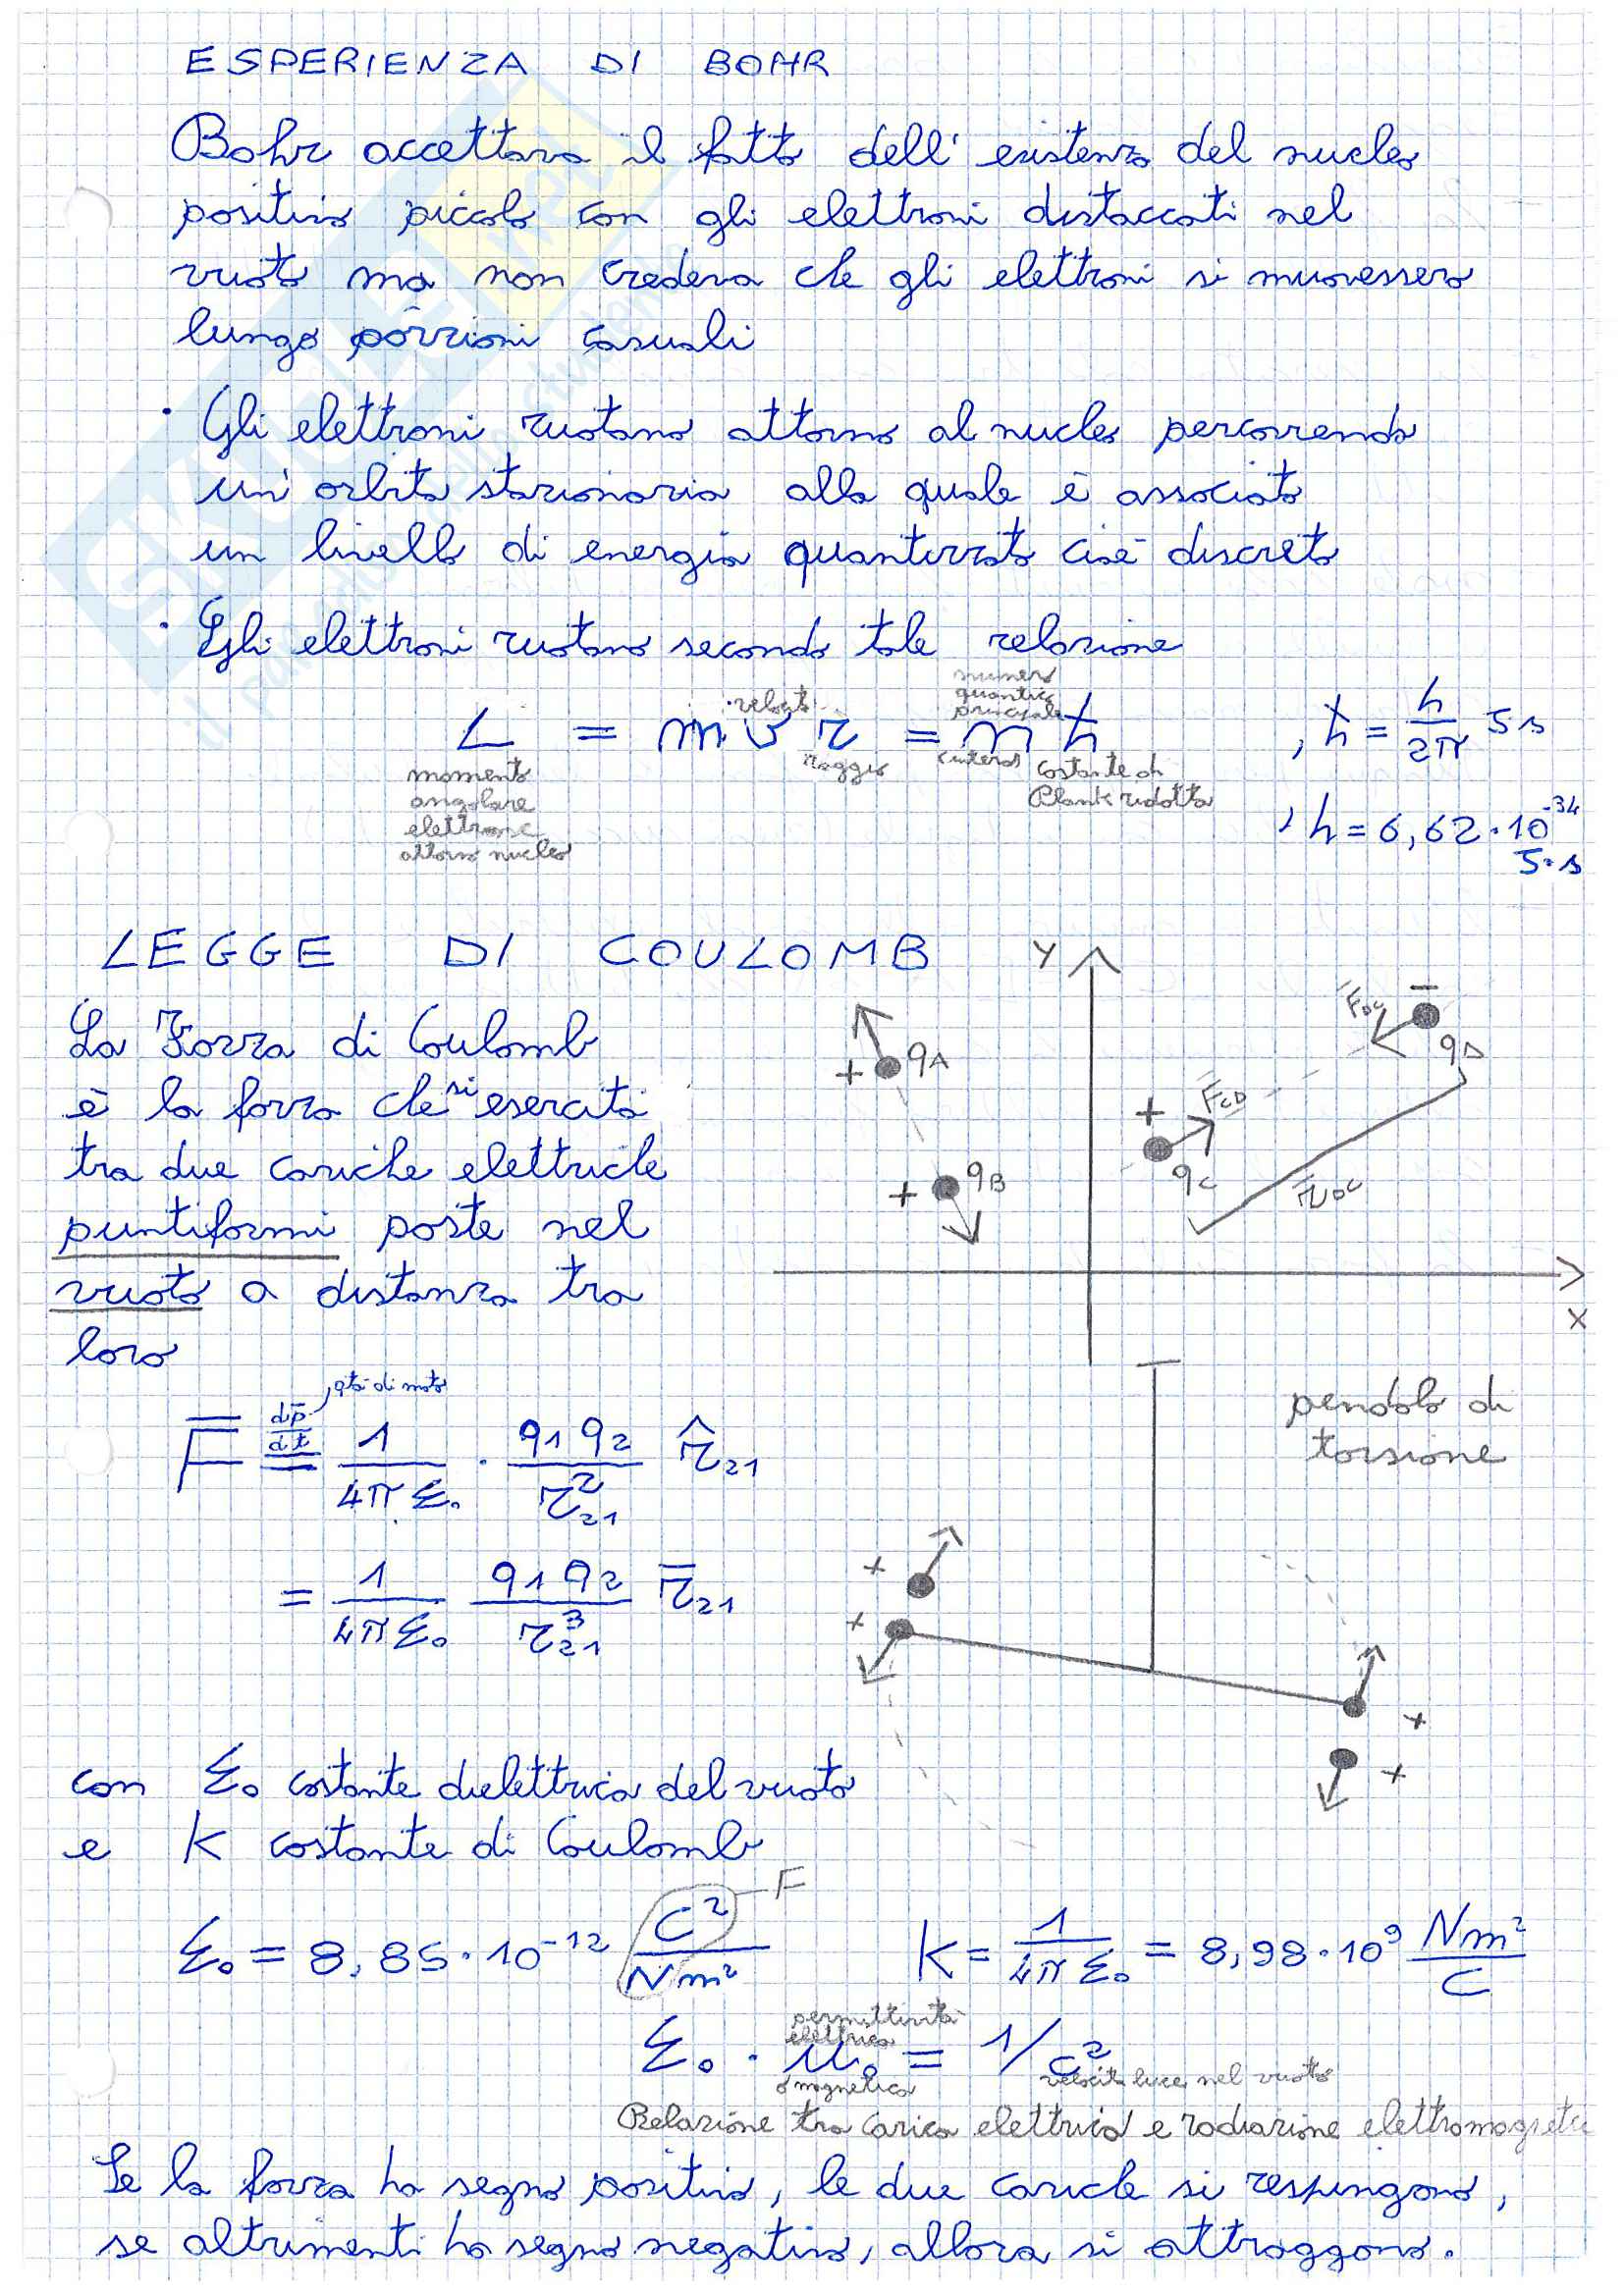 ESPERIENZA DI BOHR
Bohr accettava il fatto dell' esistenza del nucleo
positivo piccolo con gli elettroni distaccati nel
vuoto ma non credeva che gli elettroni si muovessero
lungo porzioni casuali
· Gli elettroni ruotano attorno al nucleo percorrendo
un' orbita stazionaria alla quale è associato
un livello di energia quantizzato cioè discreto
· Gli elettroni ruotano secondo tale relazione
numero
quantico
principale
velocità
L = m v r = n ħ , ħ = h/2π J s
raggio (intero) costante di
Plank ridotta
momento
angolare
elettrone
attorno nucleo
, h = 6,62·10^-34
J·s
LEGGE DI COULOMB
La Forza di Coulomb
è la forza che si esercita
tra due cariche elettriche
puntiformi poste nel
vuoto a distanza tra
loro
Y
X
+ qA
+ qB
+ qC
FCD
FDC
- qD
r̄DC
qtà di moto
F̄ = dp̄/dt = 1/4πε₀ · q1q2/r²21 r̂21
= 1/4πε₀ q1q2/r³21 r̄21
pendolo di
torsione
+
+
+
+
con ε₀ costante dielettrica del vuoto
e K costante di Coulomb
ε₀ = 8,85·10^-12 C²/Nm² F
K = 1/4πε₀ = 8,98·10^9 Nm²/C
permettività
elettrica
ε₀ · μ₀ = 1/c²
o magnetica
velocità luce nel vuoto
Relazione tra carica elettrica e radiazione elettromagnetica
Se la forza ha segno positivo, le due cariche si respingono,
se altrimenti ha segno negativo, allora si attraggono.